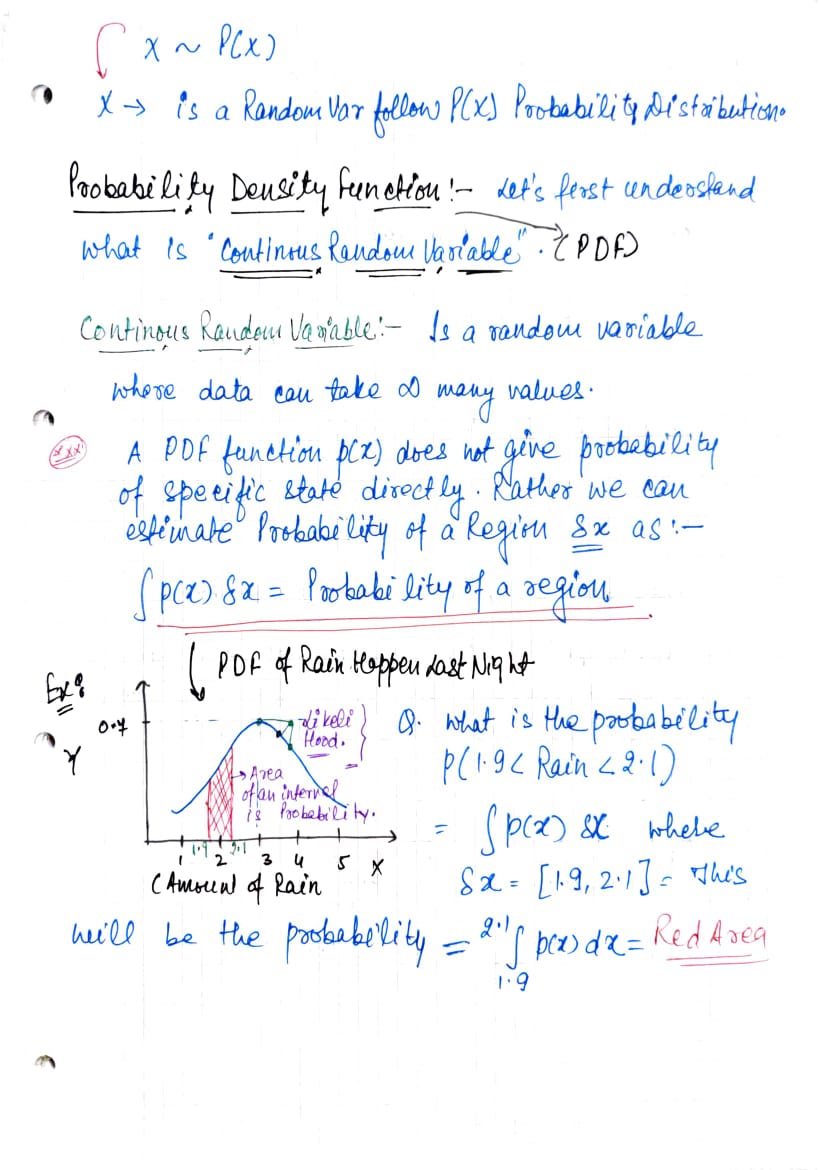 X ~ P(X)
X → is a Random Var follow P(X) Probability Distribution.
Probability Density Function :- Let's first understand
what is "Continous Random Variable". (PDF)
Continous Random Variable :- Is a random variable
where data can take ∞ many values.
***
A PDF function p(x) does not give probability
of specific state directly. Rather we can
estimate Probability of a Region δx as :-
∫ p(x) δx = Probability of a region
PDF of Rain Happen Last Night
Ex:
0.7
Y
Likeli
Hood.
Area
of an interval
is Probability.
1 1.9 2 2.1 3 4 5 X
(Amount of Rain
Q. What is the probability
P(1.9 < Rain < 2.1)
= ∫ p(x) δx where
δx = [1.9, 2.1] = This
will be the probability = 2.1 ∫ p(x) dx = Red Area
1.9